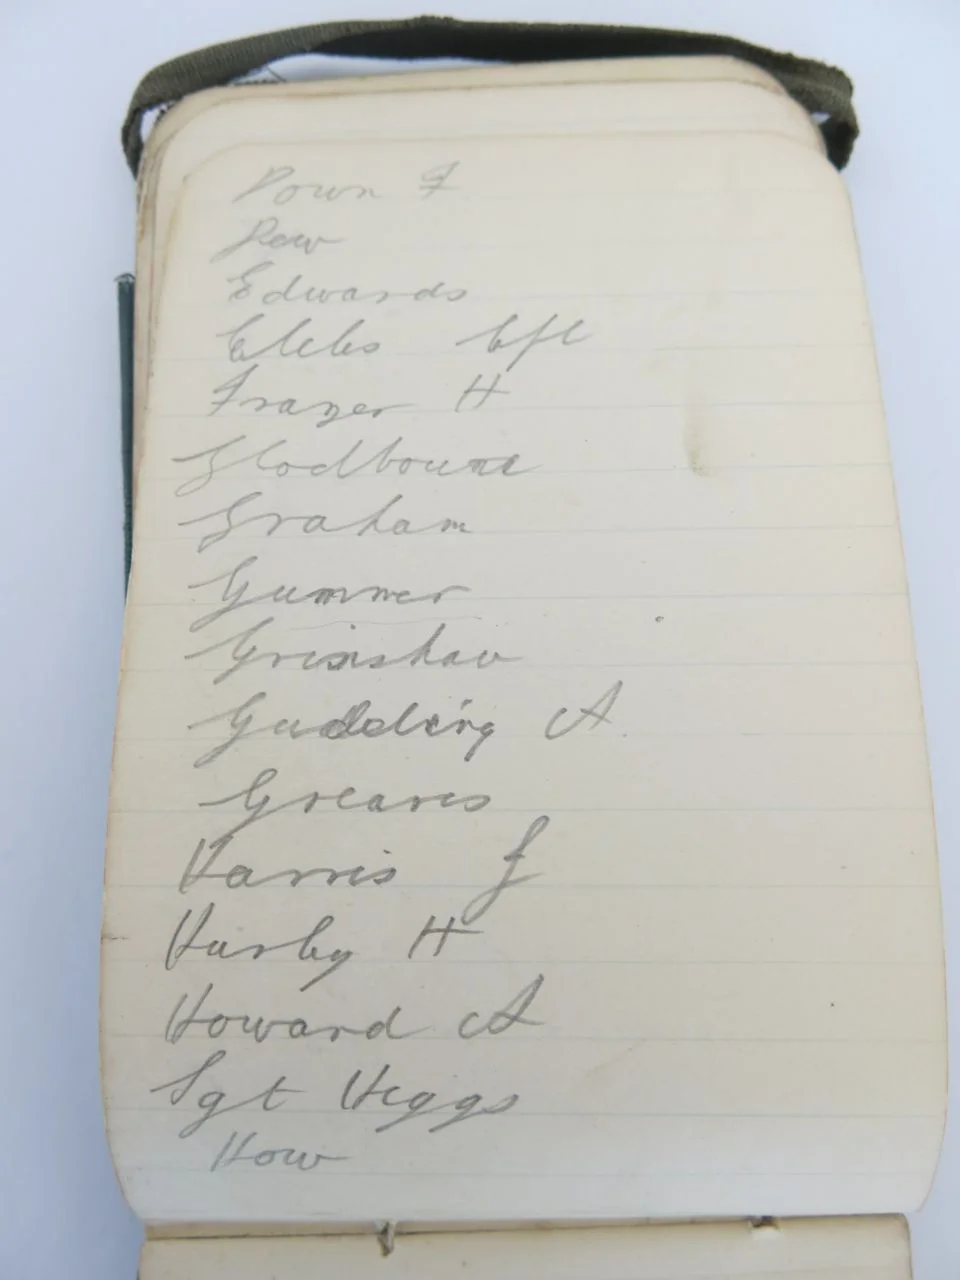 Down F
Dow
Edwards
Cpl
Frazer H
Glodboune
Graham
Gummer
Grinshaw
Gudding A
Greaves
Harris J
Harby H
Howard A
Sgt Higgs
How